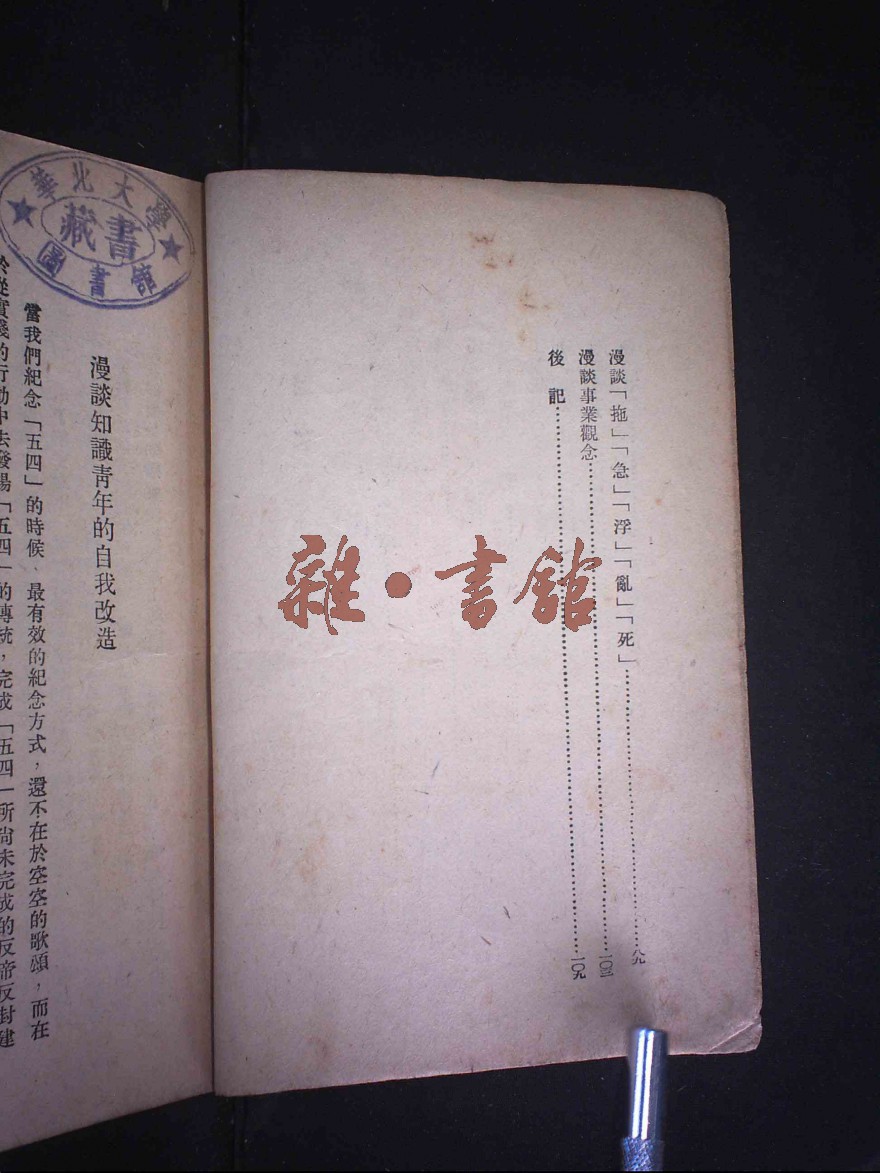 漫談「拖」「急」「浮」「亂」「死」……八九
漫談事業觀念……一〇三
後 記……一〇九
雜·書館
華北大學
藏書
圖書館
漫談知識青年的自我改造
當我們紀念「五四」的時候、最有效的紀念方式，還不在於空空的歌頌，而在
於從實踐的行動中去發揚「五四」的傳統，完成「五四」所尚未完成的反帝反封建